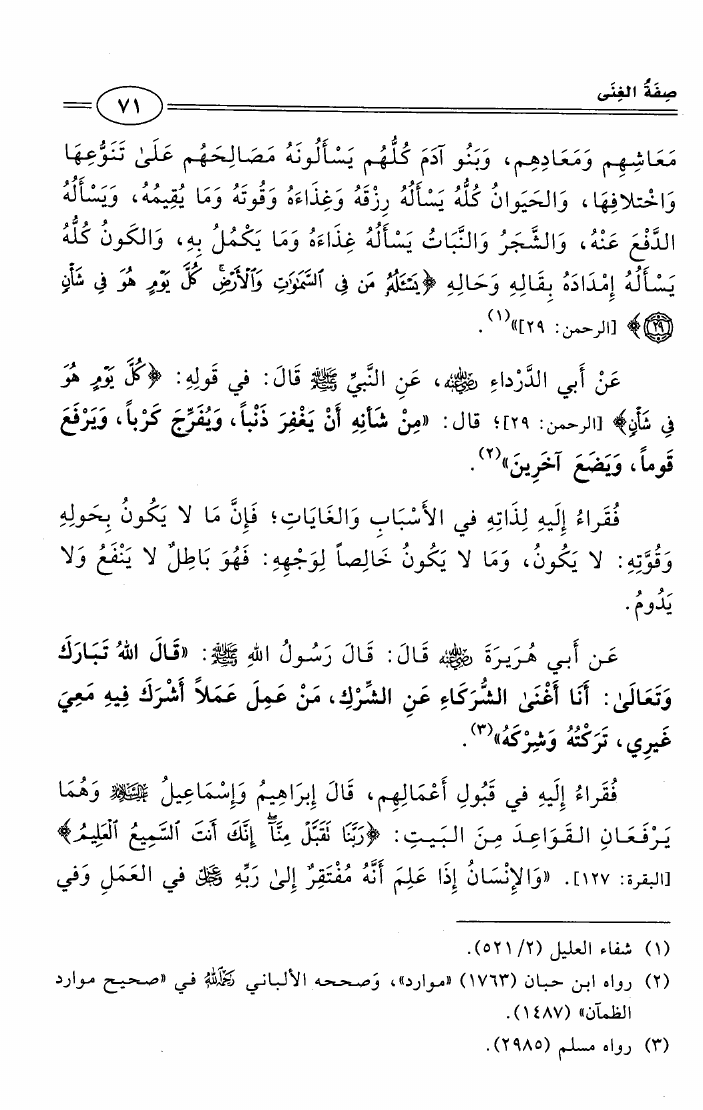 صِفَةُ الغِنَى
٧١
مَعَاشِهِم وَمَعَادِهِم، وَبَنُو آدَمَ كُلُّهُم يَسأَلُونَهُ مَصَالِحَهُم عَلَىٰ تَنَوُّعِهَا
وَاخْتلافِهَا، وَالحَيَوانُ كُلُّهُ يَسأَلُهُ رِزْقَهُ وَغِذَاءَهُ وَقُوتَهُ وَمَا يُقِيمُهُ، وَيَسأَلُهُ
الدَّفْعَ عَنْهُ، وَالشَّجَرُ وَالنَّبَاتُ يَسأَلُهُ غِذَاءَهُ وَمَا يَكْمُلُ بِهِ، وَالكَونُ كُلُّهُ
يَسأَلُهُ إِمْدَادَهُ بِقَالِهِ وَحَالِهِ ﴿يَسْـَٔلُهُۥ مَن فِى ٱلسَّمَـٰوَٰتِ وَٱلْأَرْضِ ۚ كُلَّ يَوْمٍ هُوَ فِى شَأْنٍ
۝٢٩﴾ [الرحمن: ٢٩]»(١).
عَنْ أَبي الدَّرْداءِ رضي الله عنه، عَنِ النَّبيِّ ﷺ قَالَ: في قَولِهِ: ﴿كُلَّ يَوْمٍ هُوَ
فِى شَأْنٍ﴾ [الرحمن: ٢٩]؛ قال: «مِنْ شَأنِهِ أَنْ يَغْفِرَ ذَنْباً، وَيُفَرِّجَ كَرْباً، وَيَرْفَعَ
قَوماً، وَيَضَعَ آخَرِينَ»(٢).
فُقَراءُ إِلَيهِ لِذَاتِهِ في الأَسْبَابِ وَالغَايَاتِ؛ فَإِنَّ مَا لا يَكُونُ بِحَولِهِ
وَقُوَّتِهِ: لا يَكُونُ، وَمَا لا يَكُونُ خَالِصاً لِوَجْهِهِ: فَهُوَ بَاطِلٌ لا يَنْفَعُ وَلا
يَدُومُ.
عَن أَبي هُرَيرَةَ رضي الله عنه قَالَ: قَالَ رَسُولُ اللهِ ﷺ: «قَالَ اللهُ تَبَارَكَ
وَتَعَالَىٰ: أَنَا أَغْنَىٰ الشُّرَكَاءِ عَنِ الشِّرْكِ، مَنْ عَمِلَ عَمَلاً أَشْرَكَ فِيهِ مَعِيَ
غَيرِي، تَرَكْتُهُ وَشِرْكَهُ»(٣).
فُقَراءُ إِلَيهِ في قَبُولِ أَعْمَالِهِم، قَالَ إِبْرَاهِيمُ وَإِسْمَاعِيلُ عليهما السلام وَهُمَا
يَرْفَعَانِ القَوَاعِدَ مِنَ البَيتِ: ﴿رَبَّنَا نَقَبَّلْ مِنَّآ ۖ إِنَّكَ أَنتَ ٱلسَّمِيعُ ٱلْعَلِيمُ﴾
[البقرة: ١٢٧]. «وَالإِنْسَانُ إِذَا عَلِمَ أَنَّهُ مُفْتَقِرٌ إِلىٰ رَبِّهِ عز وجل في العَمَلِ وَفي
(١) شفاء العليل (٢/ ٥٢١).
(٢) رواه ابن حبان (١٧٦٣) «موارد»، وَصححه الألباني رحمه الله في «صحيح موارد
الظمآن» (١٤٨٧).
(٣) رواه مسلم (٢٩٨٥).